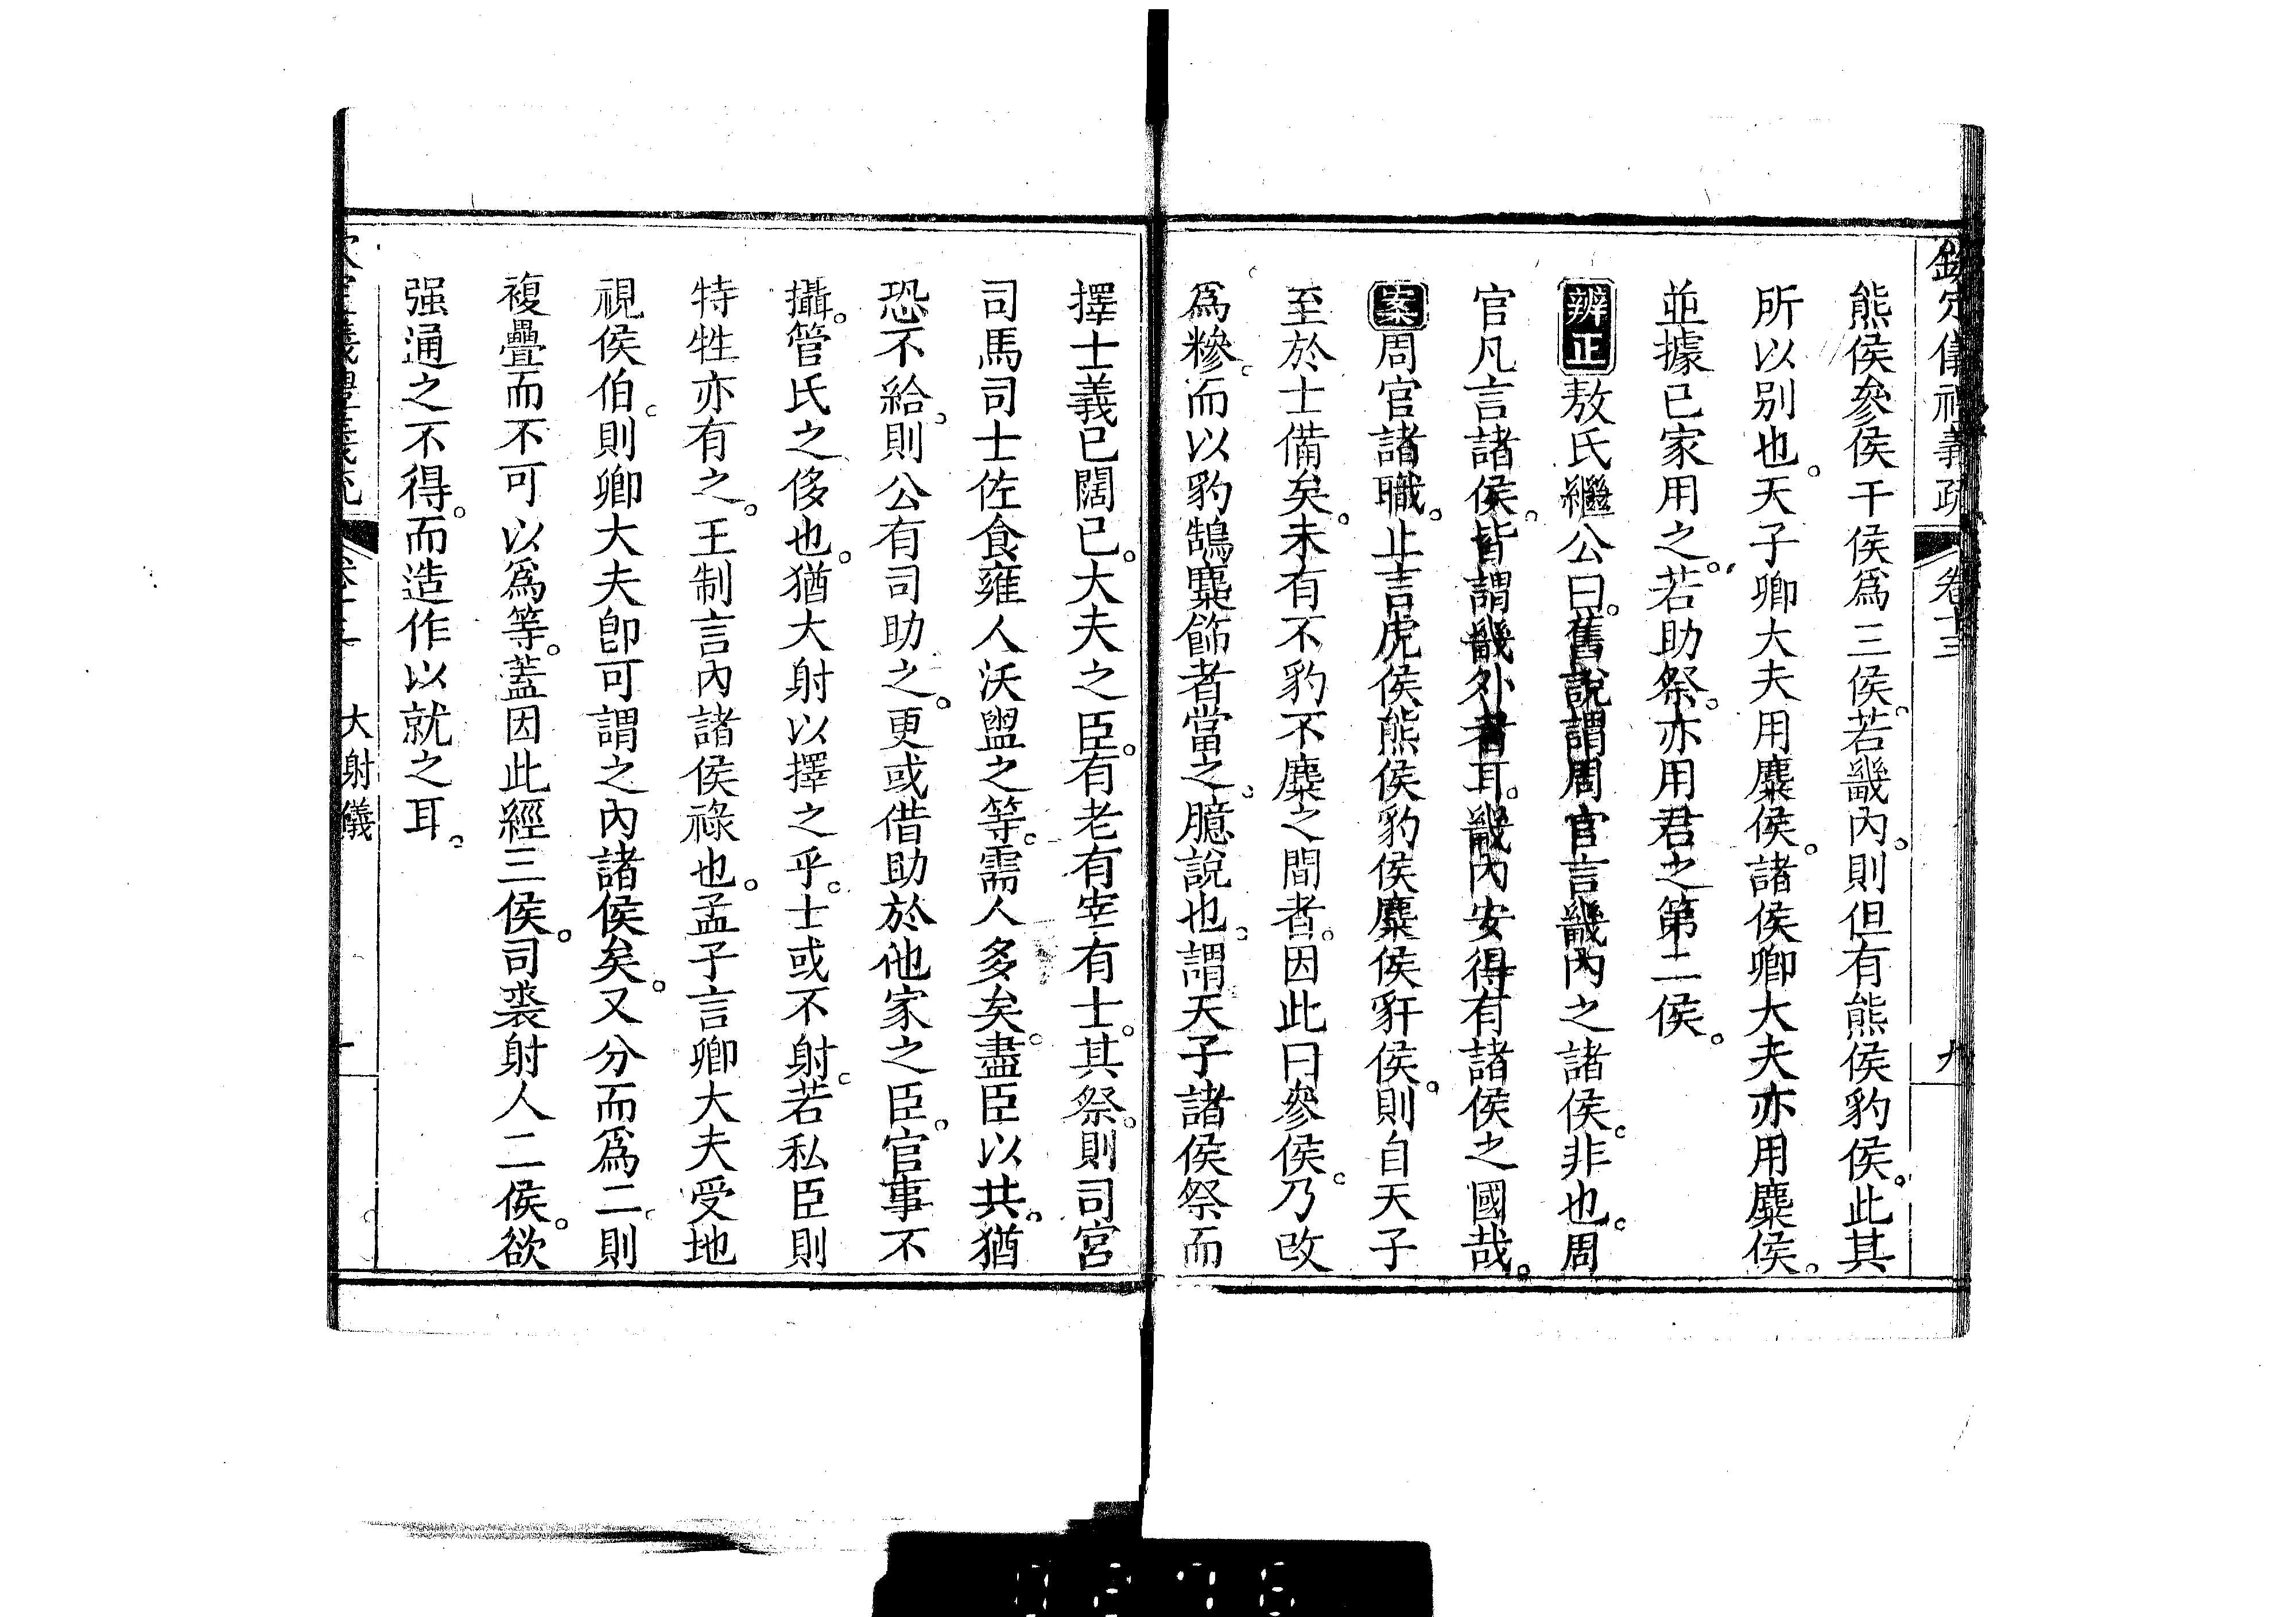 欽定儀禮義疏 卷十三 九
熊侯參侯干侯爲三侯。若畿內。則但有熊侯豹侯。此其
所以别也。天子卿大夫用麋侯。諸侯卿大夫亦用麋侯。
並據已家用之。若助祭。亦用君之第二侯。
辨正敖氏繼公曰。舊說謂周官言畿內之諸侯。非也。周
官凡言諸侯。皆謂畿外者耳。畿內安得有諸侯之國哉。
案周官諸職。止言虎侯熊侯豹侯麋侯豻侯。則自天子
至於士備矣。未有不豹不麋之間者。因此曰參侯。乃改
爲糝。而以豹鵠麋飾者當之。臆說也。謂天子諸侯祭而
擇士義已闊已。大夫之臣。有老有宰有士。其祭。則司宮
司馬司士佐食雍人沃盥之等。需人多矣。盡臣以共。猶
恐不給。則公有司助之。更或借助於他家之臣。官事不
攝。管氏之侈也。猶大射以擇之乎。士或不射。若私臣則
特牲亦有之。王制言內諸侯祿也。孟子言卿大夫受地
視侯伯。則卿大夫卽可謂之內諸侯矣。又分而爲二。則
複疊而不可以爲等。蓋因此經三侯。司裘射人二侯。欲
强通之不得。而造作以就之耳。
大射儀